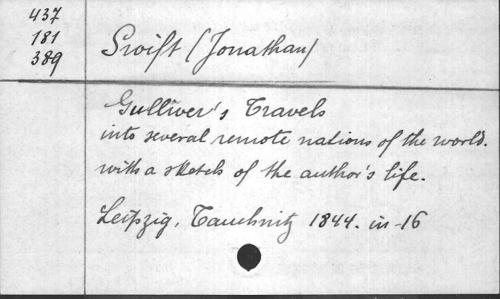 437
181
389
Swift (Jonathan)
Gulliver's Travels
into several remote nations of the world.
with a sketch of the author's life.
Leipzig, Tauchnitz 1844. in-16